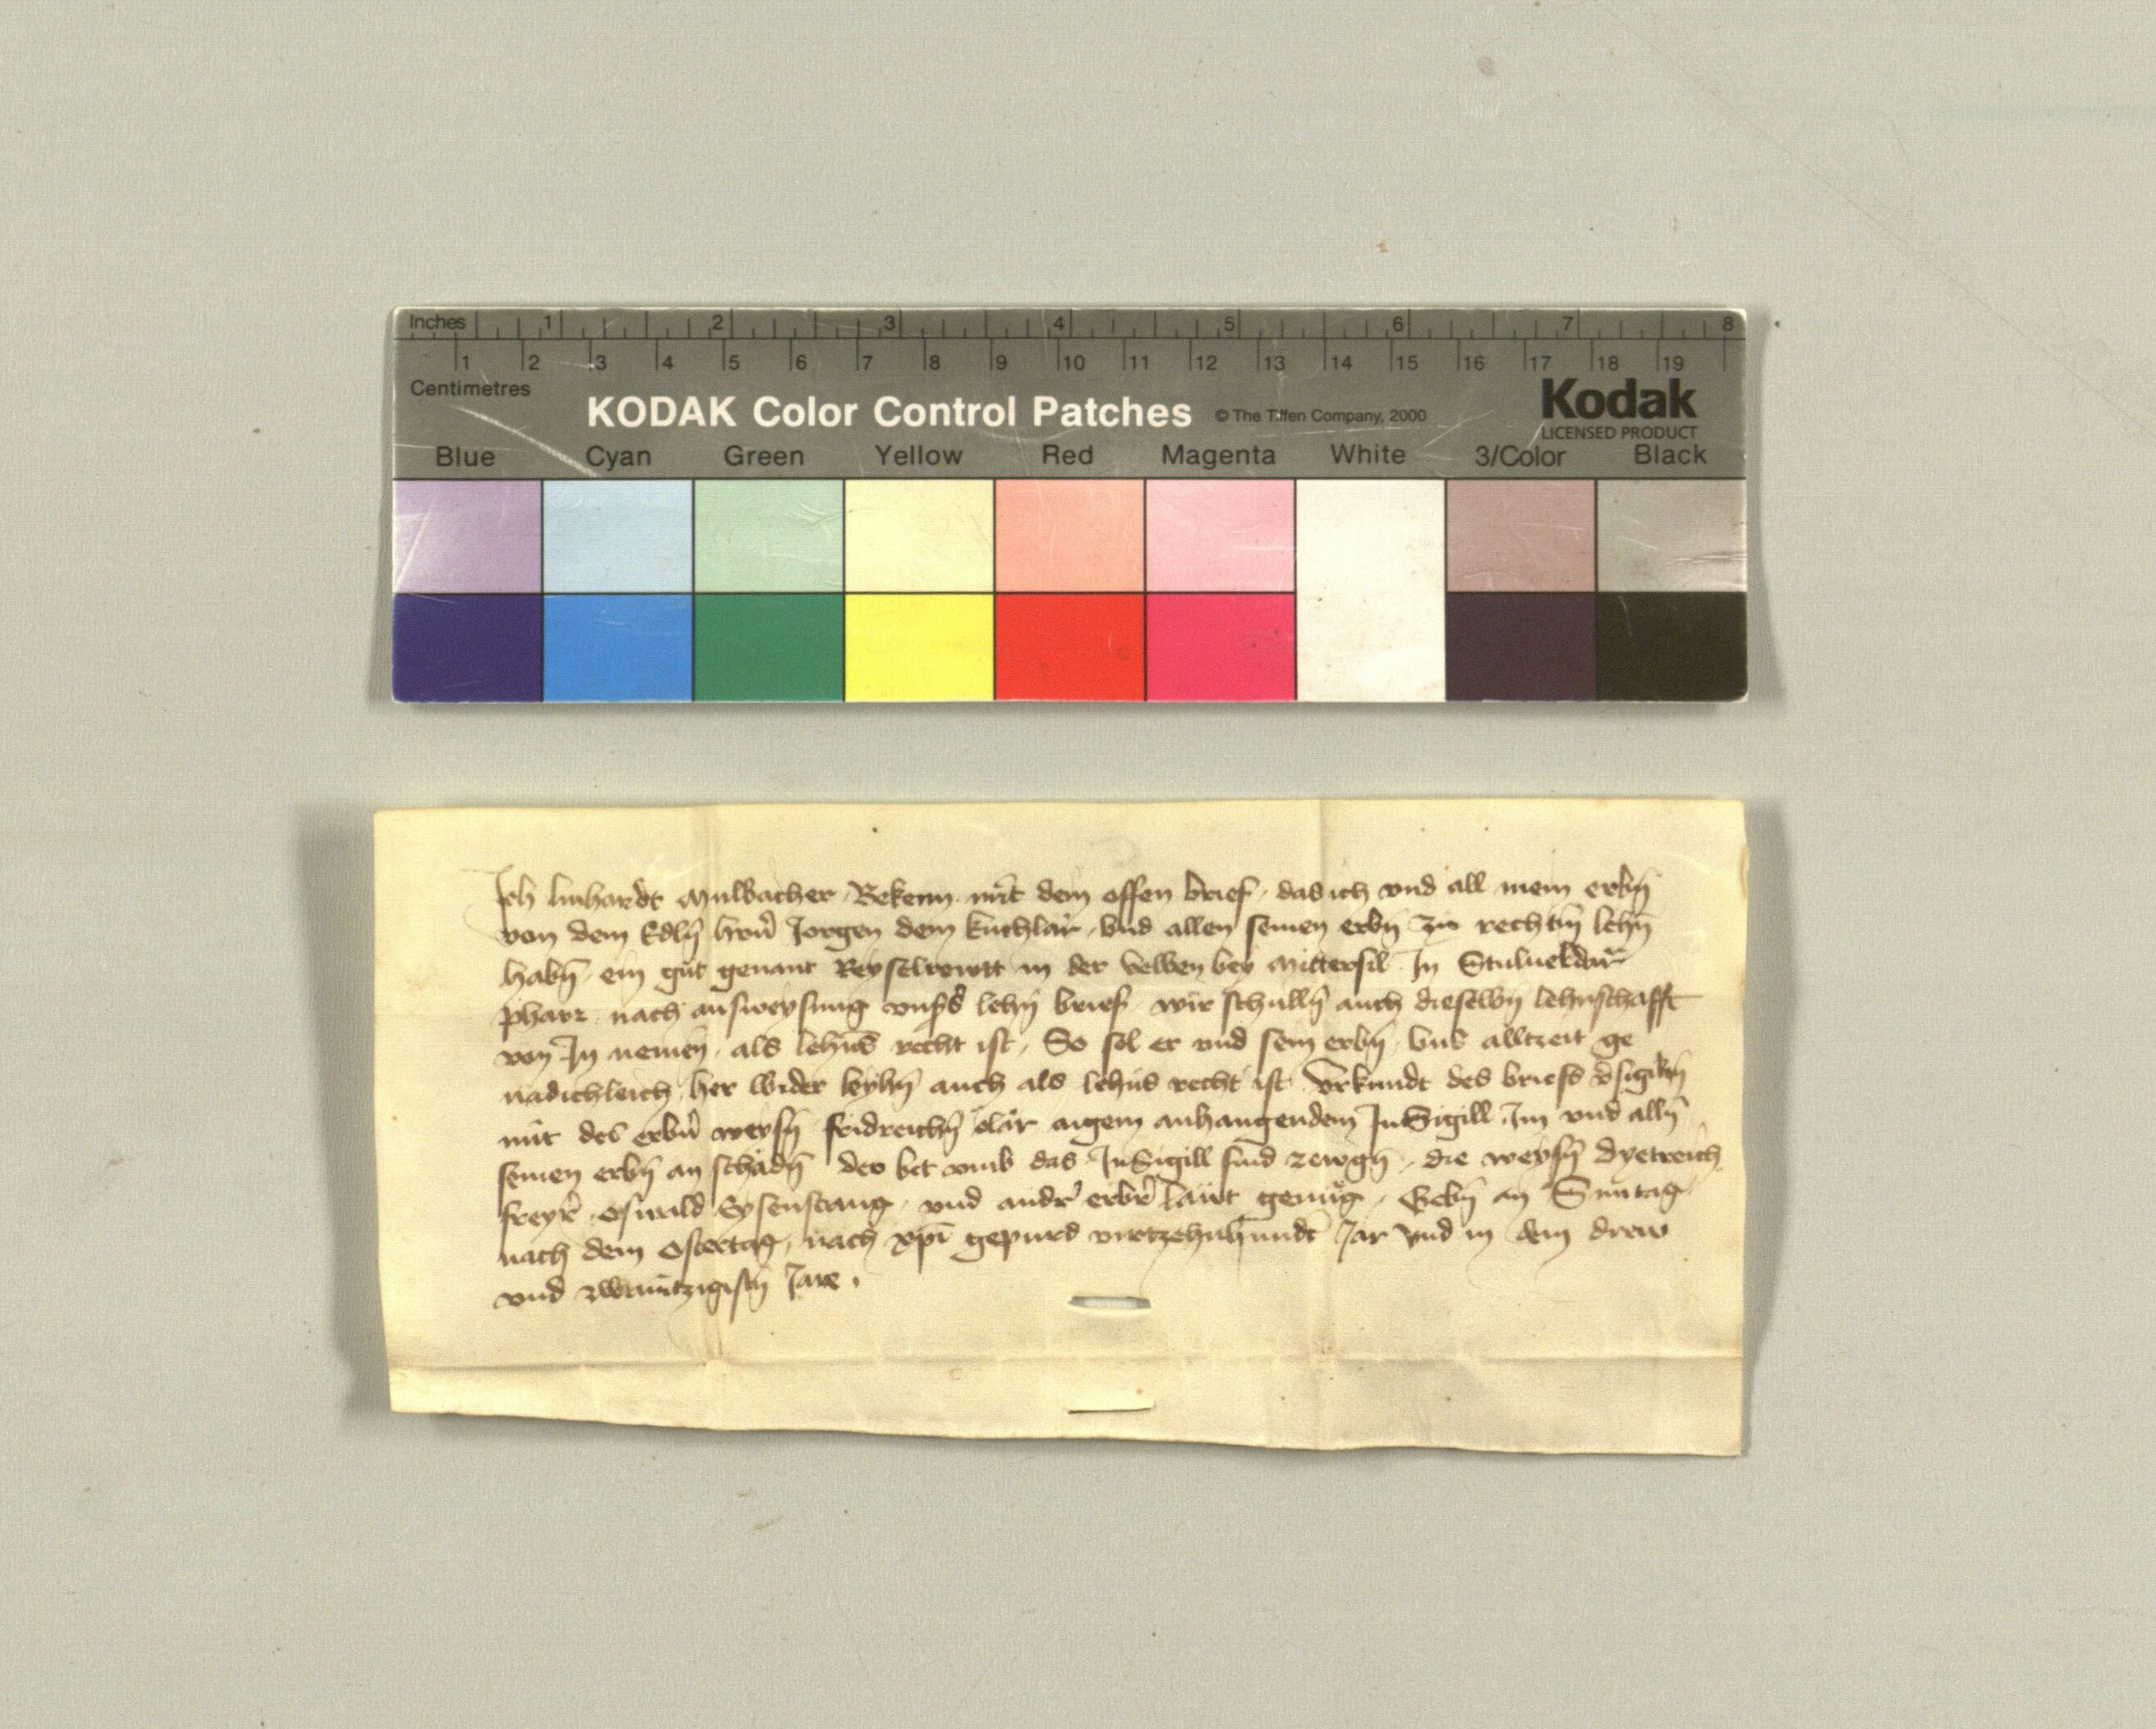 Inches 1 2 3 4 5 6 7 8
1 2 3 4 5 6 7 8 9 10 11 12 13 14 15 16 17 18 19
Centimetres
KODAK Color Control Patches © The Tiffen Company, 2000 Kodak
LICENSED PRODUCT
Blue Cyan Green Yellow Red Magenta White 3/Color Black
Ich linhardt Mulbacher Bekenn mit dem offen brief das ich vnd all mein erbn̄
von dem Edln̄ hrn̄ Jorgen dem kuchlär vnd allen seinen erbn̄ zu rechtn̄ lehn̄
habn̄ ein gut genant Reyselrewtt in der velben bey Mittersil In
pharr nach ausweysung lehn̄ brief wir schulln̄ auch dieselbn̄ lehnschafft
von In nemen als lehns recht ist So sol er vnd sein erbn̄ vns alltzeit ge
nadichleich her wider leyhn̄ auch als lehns recht ist Vrkundt des briefs
mit des erbn̄ weysn̄ fridreichn̄ aigem anhangendem InSigill Im vnd alln̄
seinen erbn̄ an schädn̄ der bet vmb das InSigill sind zewgn̄ die weysn̄ dyetreich
freyr̄ Oswald Eysenstang vnd andr̄ erbr̄ läwt genug Gebn̄ an Suntag
nach dem Ostertag nach xpī gepurd virtzehnhundt̄ Jar vnd in dem drew
vnd zwaintzigistn̄ Jare